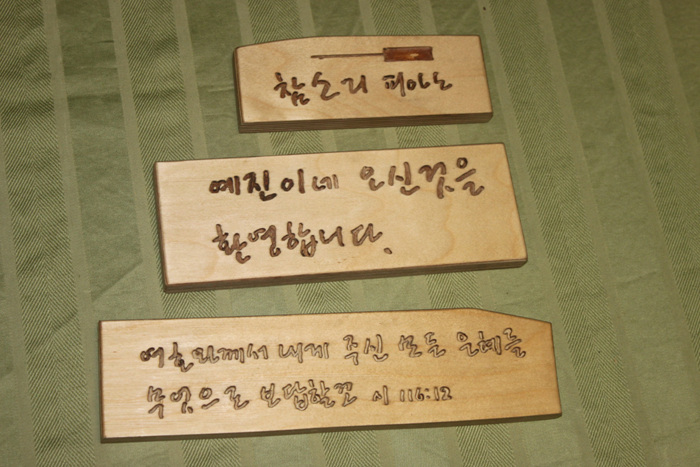 참소리 피아노
예진이네 오신것을
환영합니다.
여호와께서 내게 주신 모든 은혜를
무엇으로 보답할꼬 시 116:12